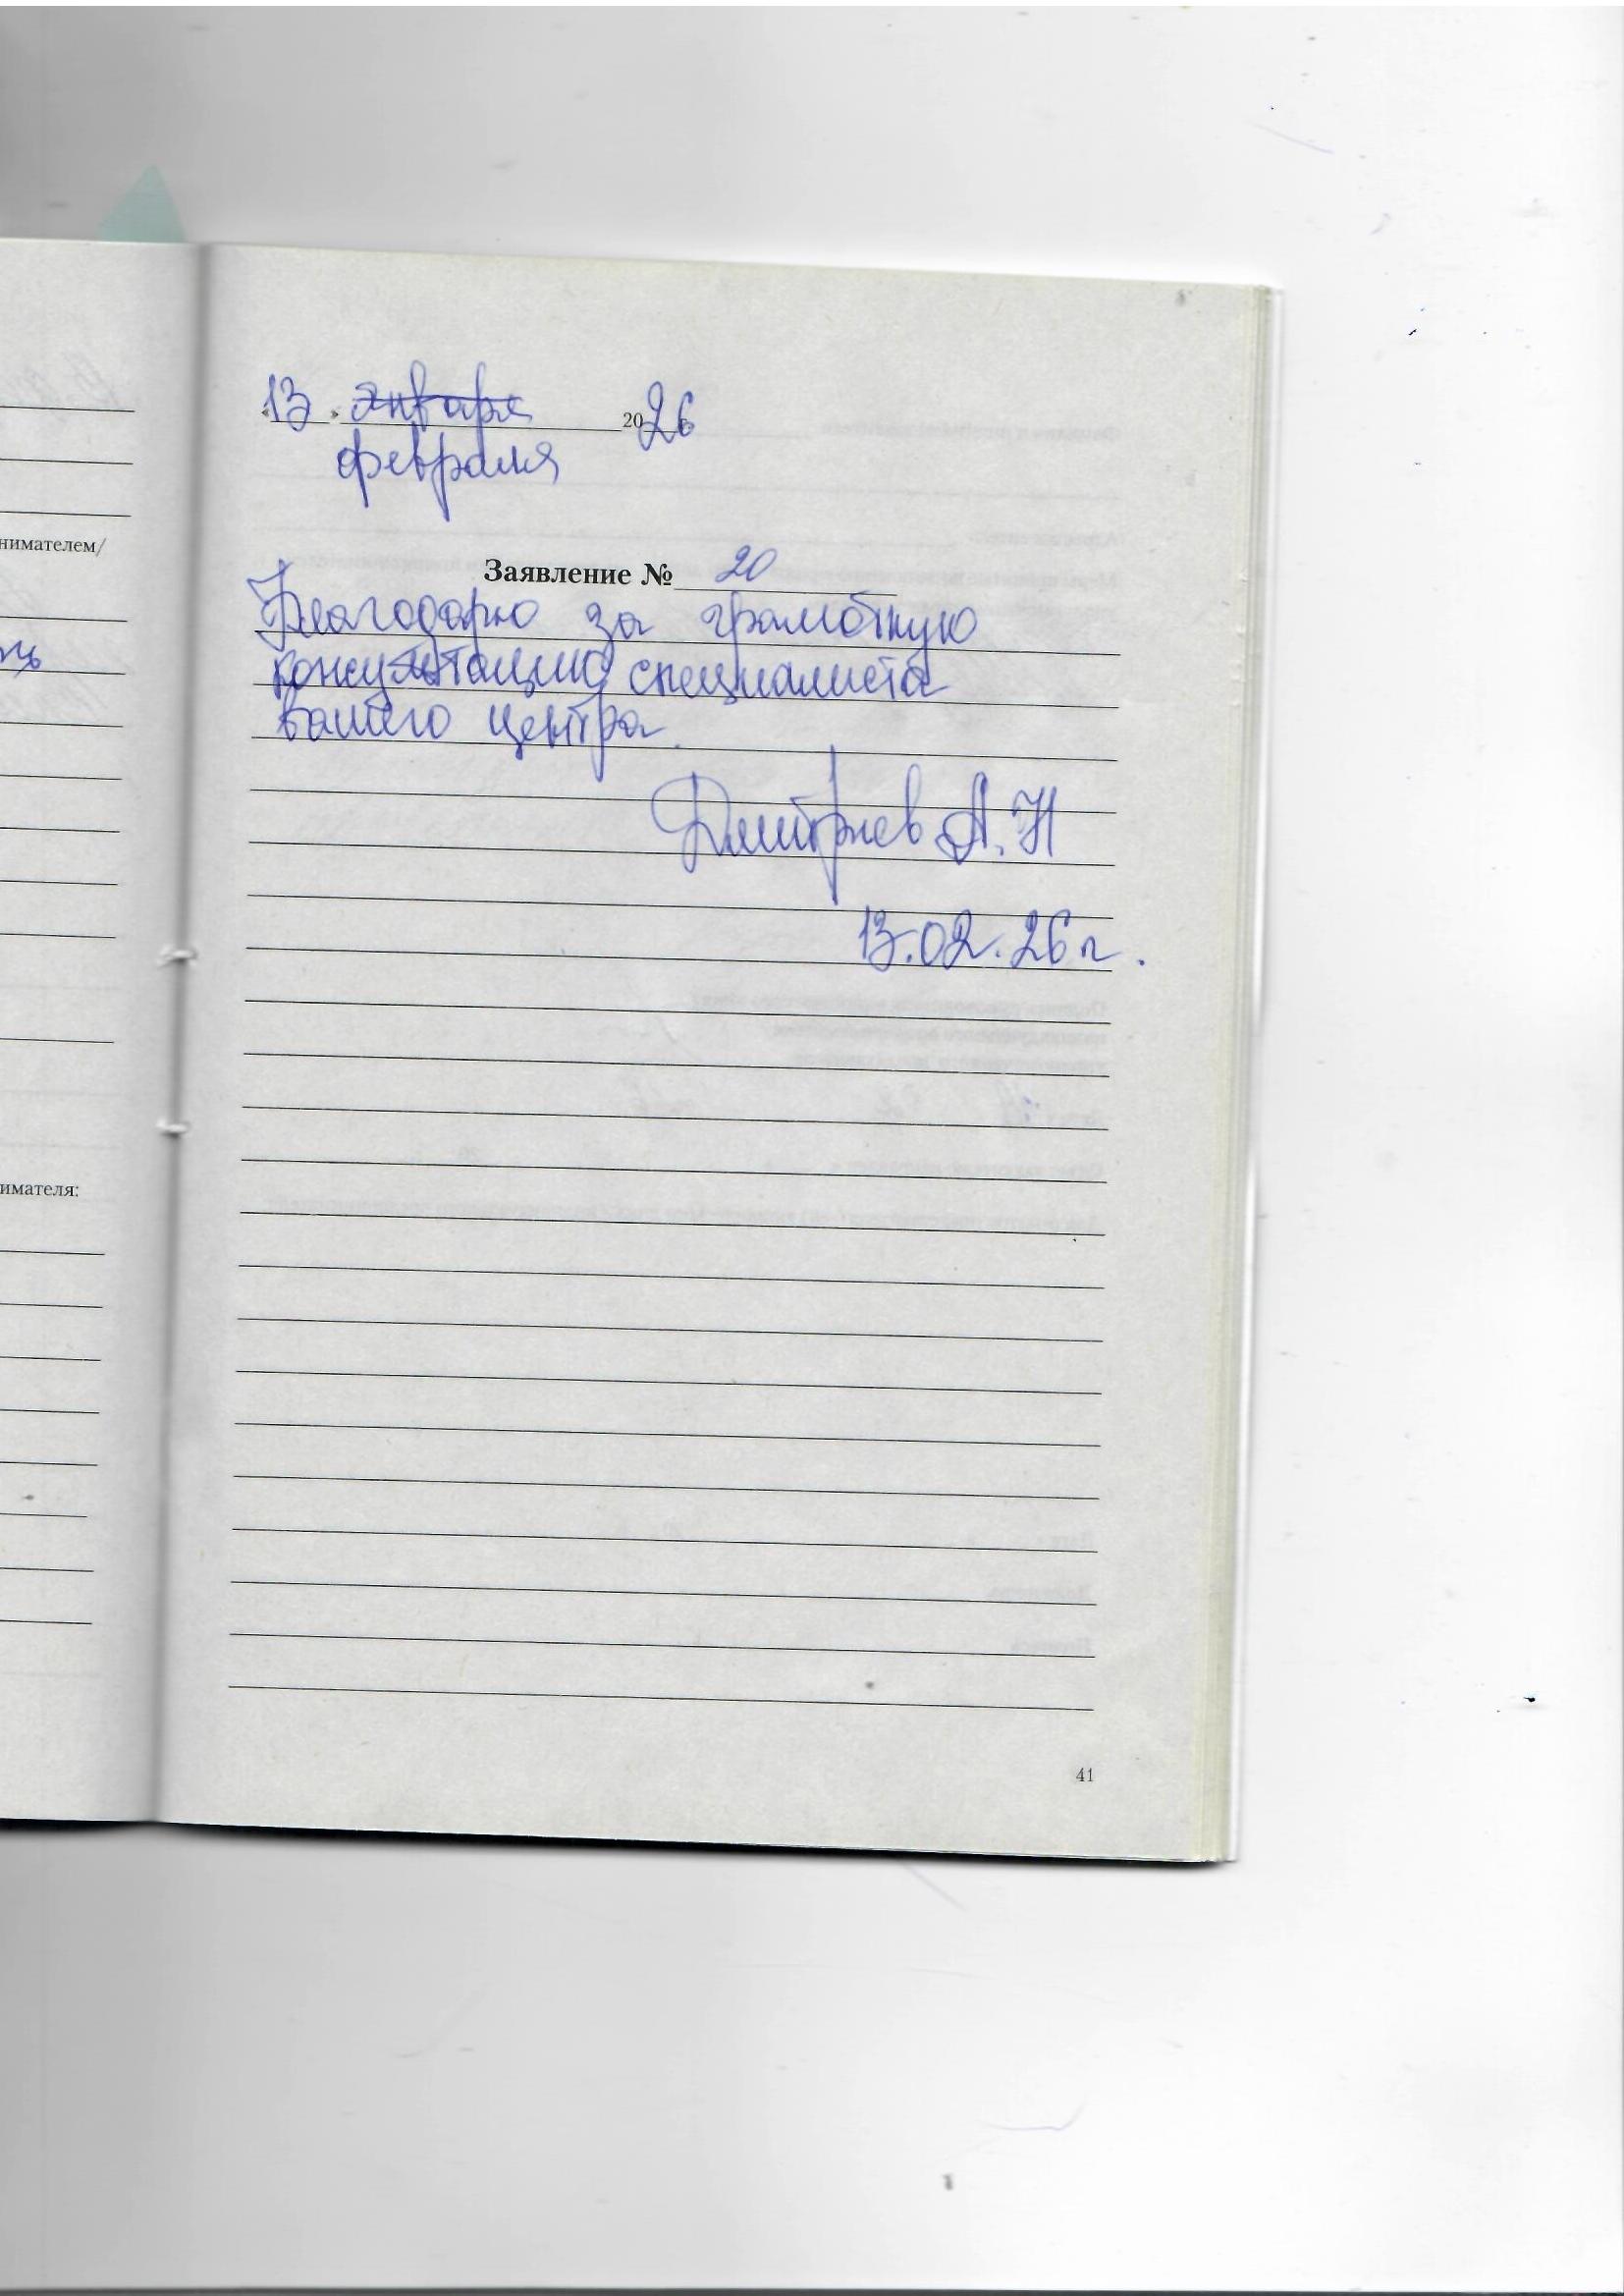 «13» января 2026
февраля
нимателем/
Заявление № 20
Благодарю за грамотную
консультацию специалиста
вашего центра.
Дмитриев А.Н
13.02.26 г.
имателя:
41